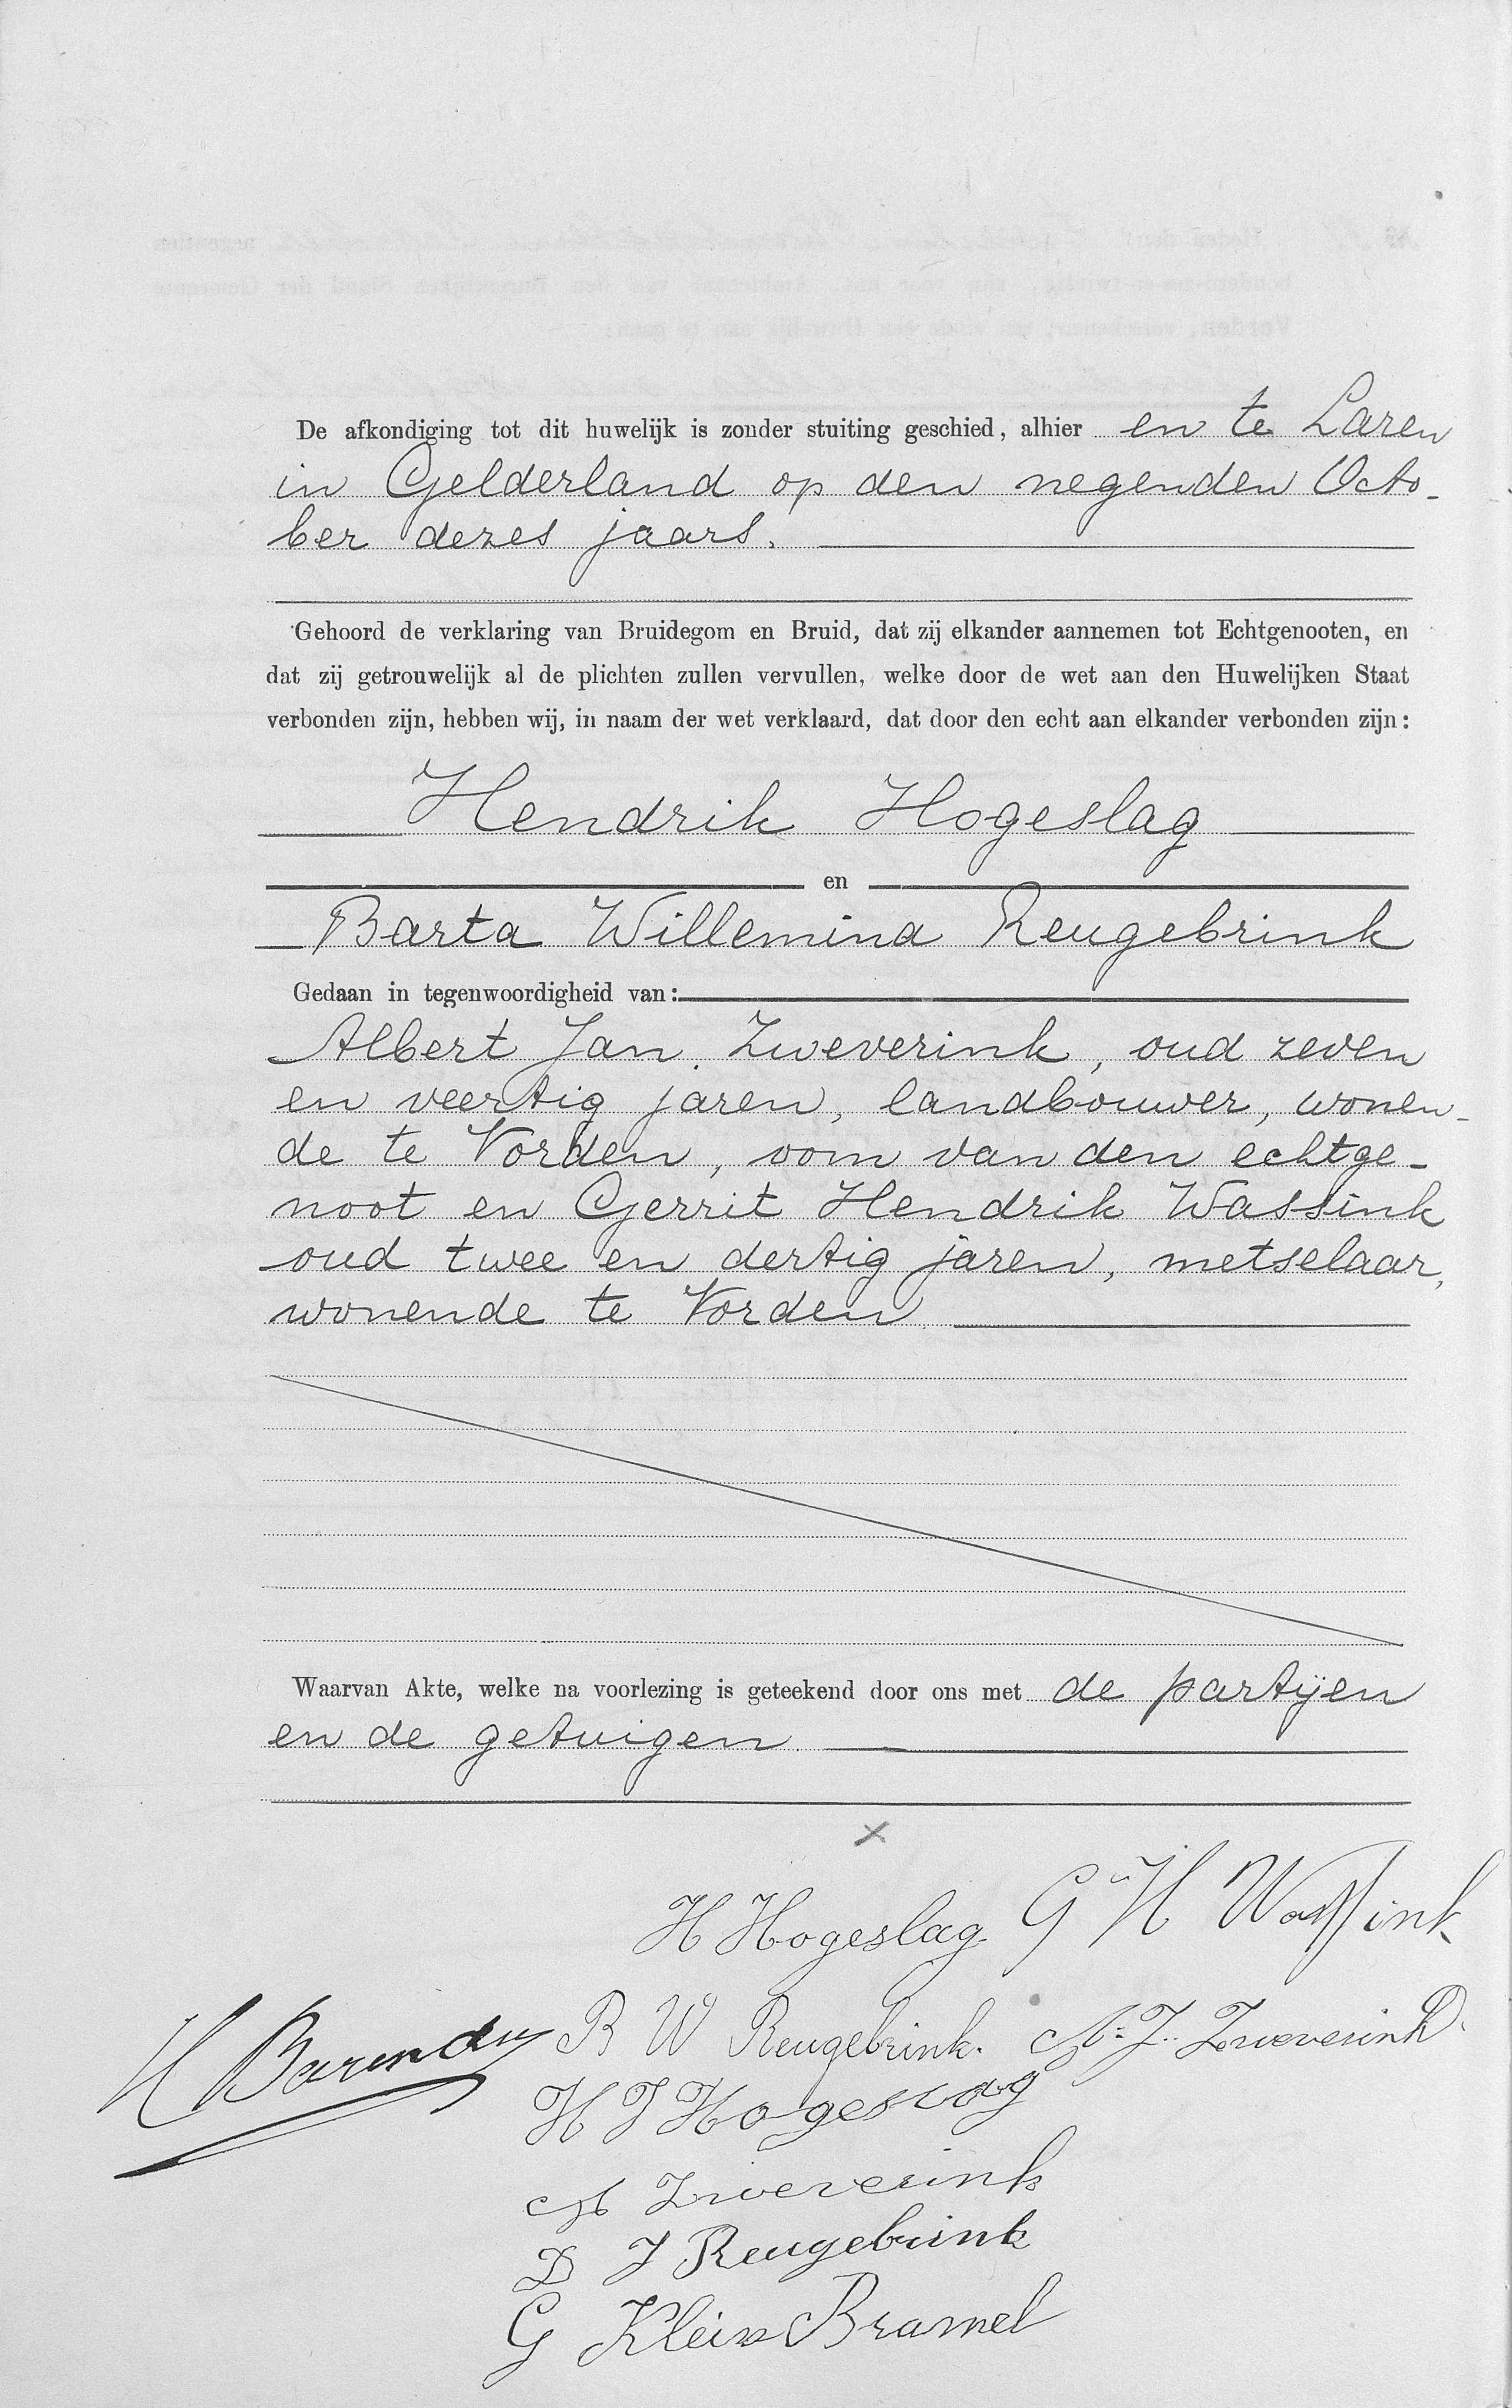 De afkondiging tot dit huwelijk is zonder stuiting geschied, alhier en te Laren
in Gelderland op den negenden Octo-
ber dezes jaars.
Gehoord de verklaring van Bruidegom en Bruid, dat zij elkander aannemen tot Echtgenooten, en
dat zij getrouwelijk al de plichten zullen vervullen, welke door de wet aan den Huwelijken Staat
verbonden zijn, hebben wij, in naam der wet verklaard, dat door den echt aan elkander verbonden zijn:
Hendrik Hogeslag
en
Barta Willemina Reugebrink
Gedaan in tegenwoordigheid van:
Albert Jan Zweverink, oud zeven
en veertig jaren, landbouwer, wonen-
de te Vorden, oom van den echtge-
noot en Gerrit Hendrik Wassink
oud twee en dertig jaren, metselaar,
wonende te Vorden
Waarvan Akte, welke na voorlezing is geteekend door ons met de partijen
en de getuigen
H Hogeslag G H Wassink
B W Reugebrink. A. J. Zweverink
H J Hogeslag
A Zweverink
D J Reugebrink
G Klein Bramel